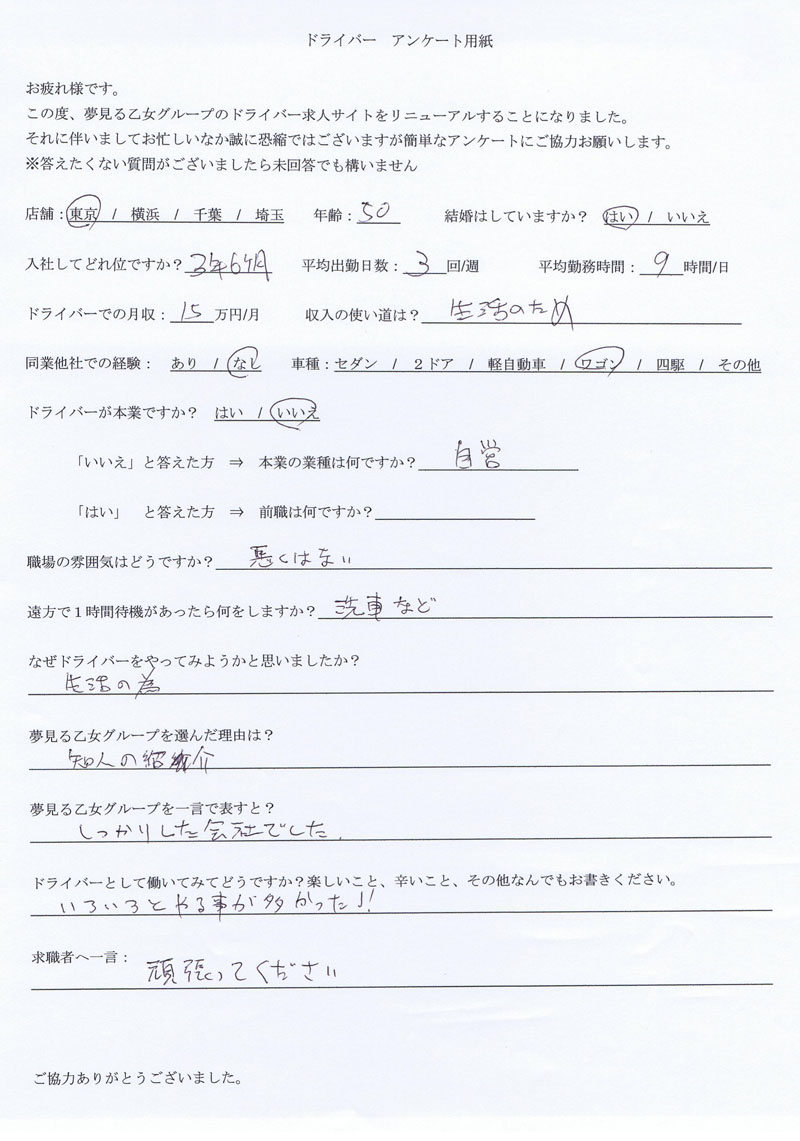 ドライバー アンケート用紙
お疲れ様です。
この度、夢見る乙女グループのドライバー求人サイトをリニューアルすることになりました。
それに伴いましてお忙しいなか誠に恐縮ではございますが簡単なアンケートにご協力お願いします。
※答えたくない質問がございましたら未回答でも構いません
店舗：東京 / 横浜 / 千葉 / 埼玉 年齢：50 結婚はしていますか？ はい / いいえ
入社してどれ位ですか？3年6ヶ月 平均出勤日数：3回/週 平均勤務時間：9時間/日
ドライバーでの月収：15万円/月 収入の使い道は？生活のため
同業他社での経験： あり / なし 車種：セダン / 2ドア / 軽自動車 / ワゴン / 四駆 / その他
ドライバーが本業ですか？ はい / いいえ
「いいえ」と答えた方 ⇒ 本業の業種は何ですか？自営
「はい」 と答えた方 ⇒ 前職は何ですか？
職場の雰囲気はどうですか？悪くはない
遠方で1時間待機があったら何をしますか？洗車など
なぜドライバーをやってみようかと思いましたか？
生活の為
夢見る乙女グループを選んだ理由は？
知人の紹介
夢見る乙女グループを一言で表すと？
しっかりした会社でした.
ドライバーとして働いてみてどうですか？楽しいこと、辛いこと、その他なんでもお書きください。
いろいろとやる事が多かった!!
求職者へ一言：
頑張ってください
ご協力ありがとうございました。